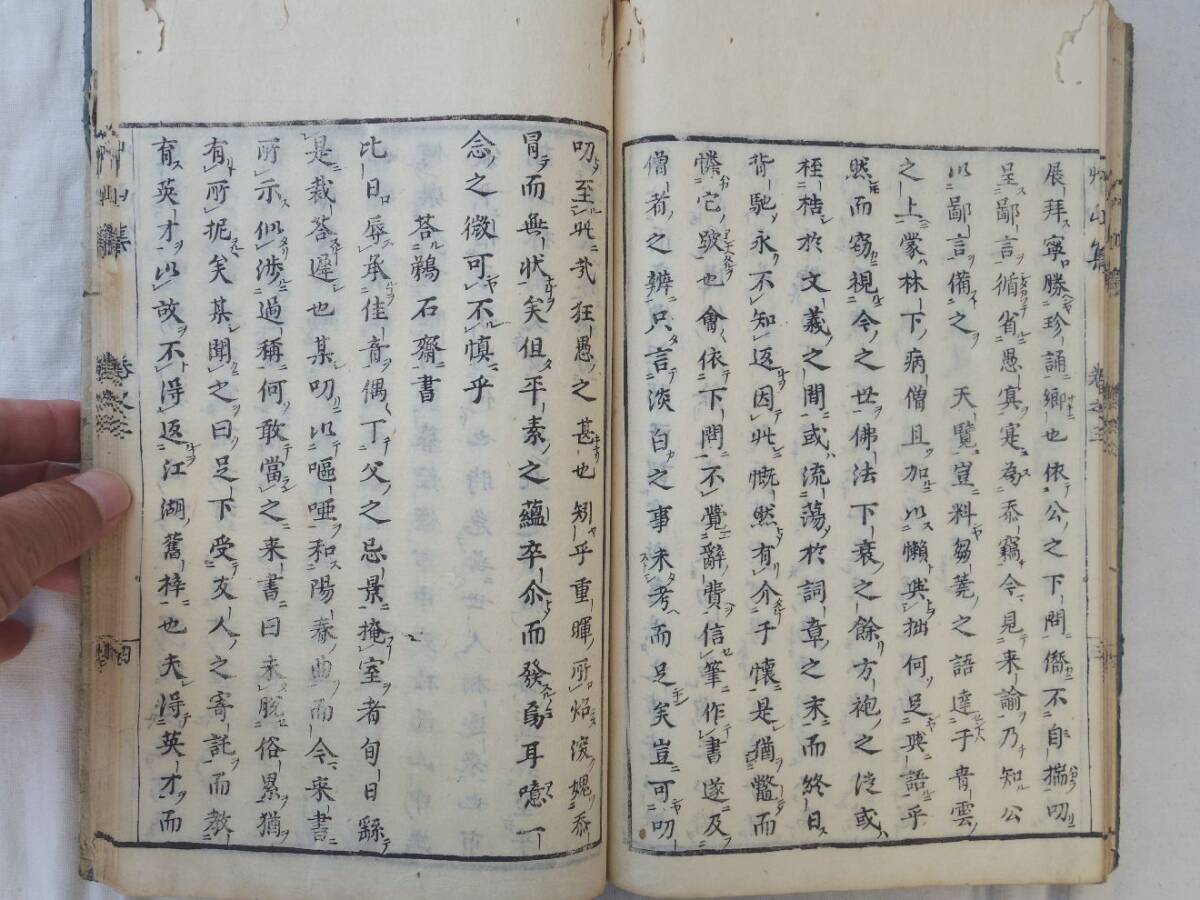 展拜寧勝珍誦卿也依公之下問僭不自揣叨
呈鄙言循省愚寘寔為忝竊今見来諭乃知公
以鄙言備之 天覽豈料芻蕘之語達于青雲
之上蒙林下病僧且加以懶與拙何足與語乎
然而窃視今之世佛法下衰之餘方袍之泛或
桎梏於文義之間或流蕩於詞章之末而終日
背馳永不知返因此慨然有介于懷是猶鼈而
憐它跛也會依下問不覺辭費信筆作書遂及
僧者之辨只言淡白之事未考而足矣豈可叨
叨至此哉狂愚之甚也矧乎重暉所焰深媿忝
冒而無状矣但平素之蘊卒介而發爲耳噫一
念之微可不慎乎
答鵜石齋書
比日辱承佳音偶丁父之忌景掩室者旬日繇
是裁荅遲也某叨以嘔唖和陽春曲而今来書
所示似渉過稱何敢當之来書曰未脱俗累猶
有所抳矣某聞之曰足下受友人之寄託而教
育英才以故不得返江湖舊梓也夫得英才而
艸山集 卷之三